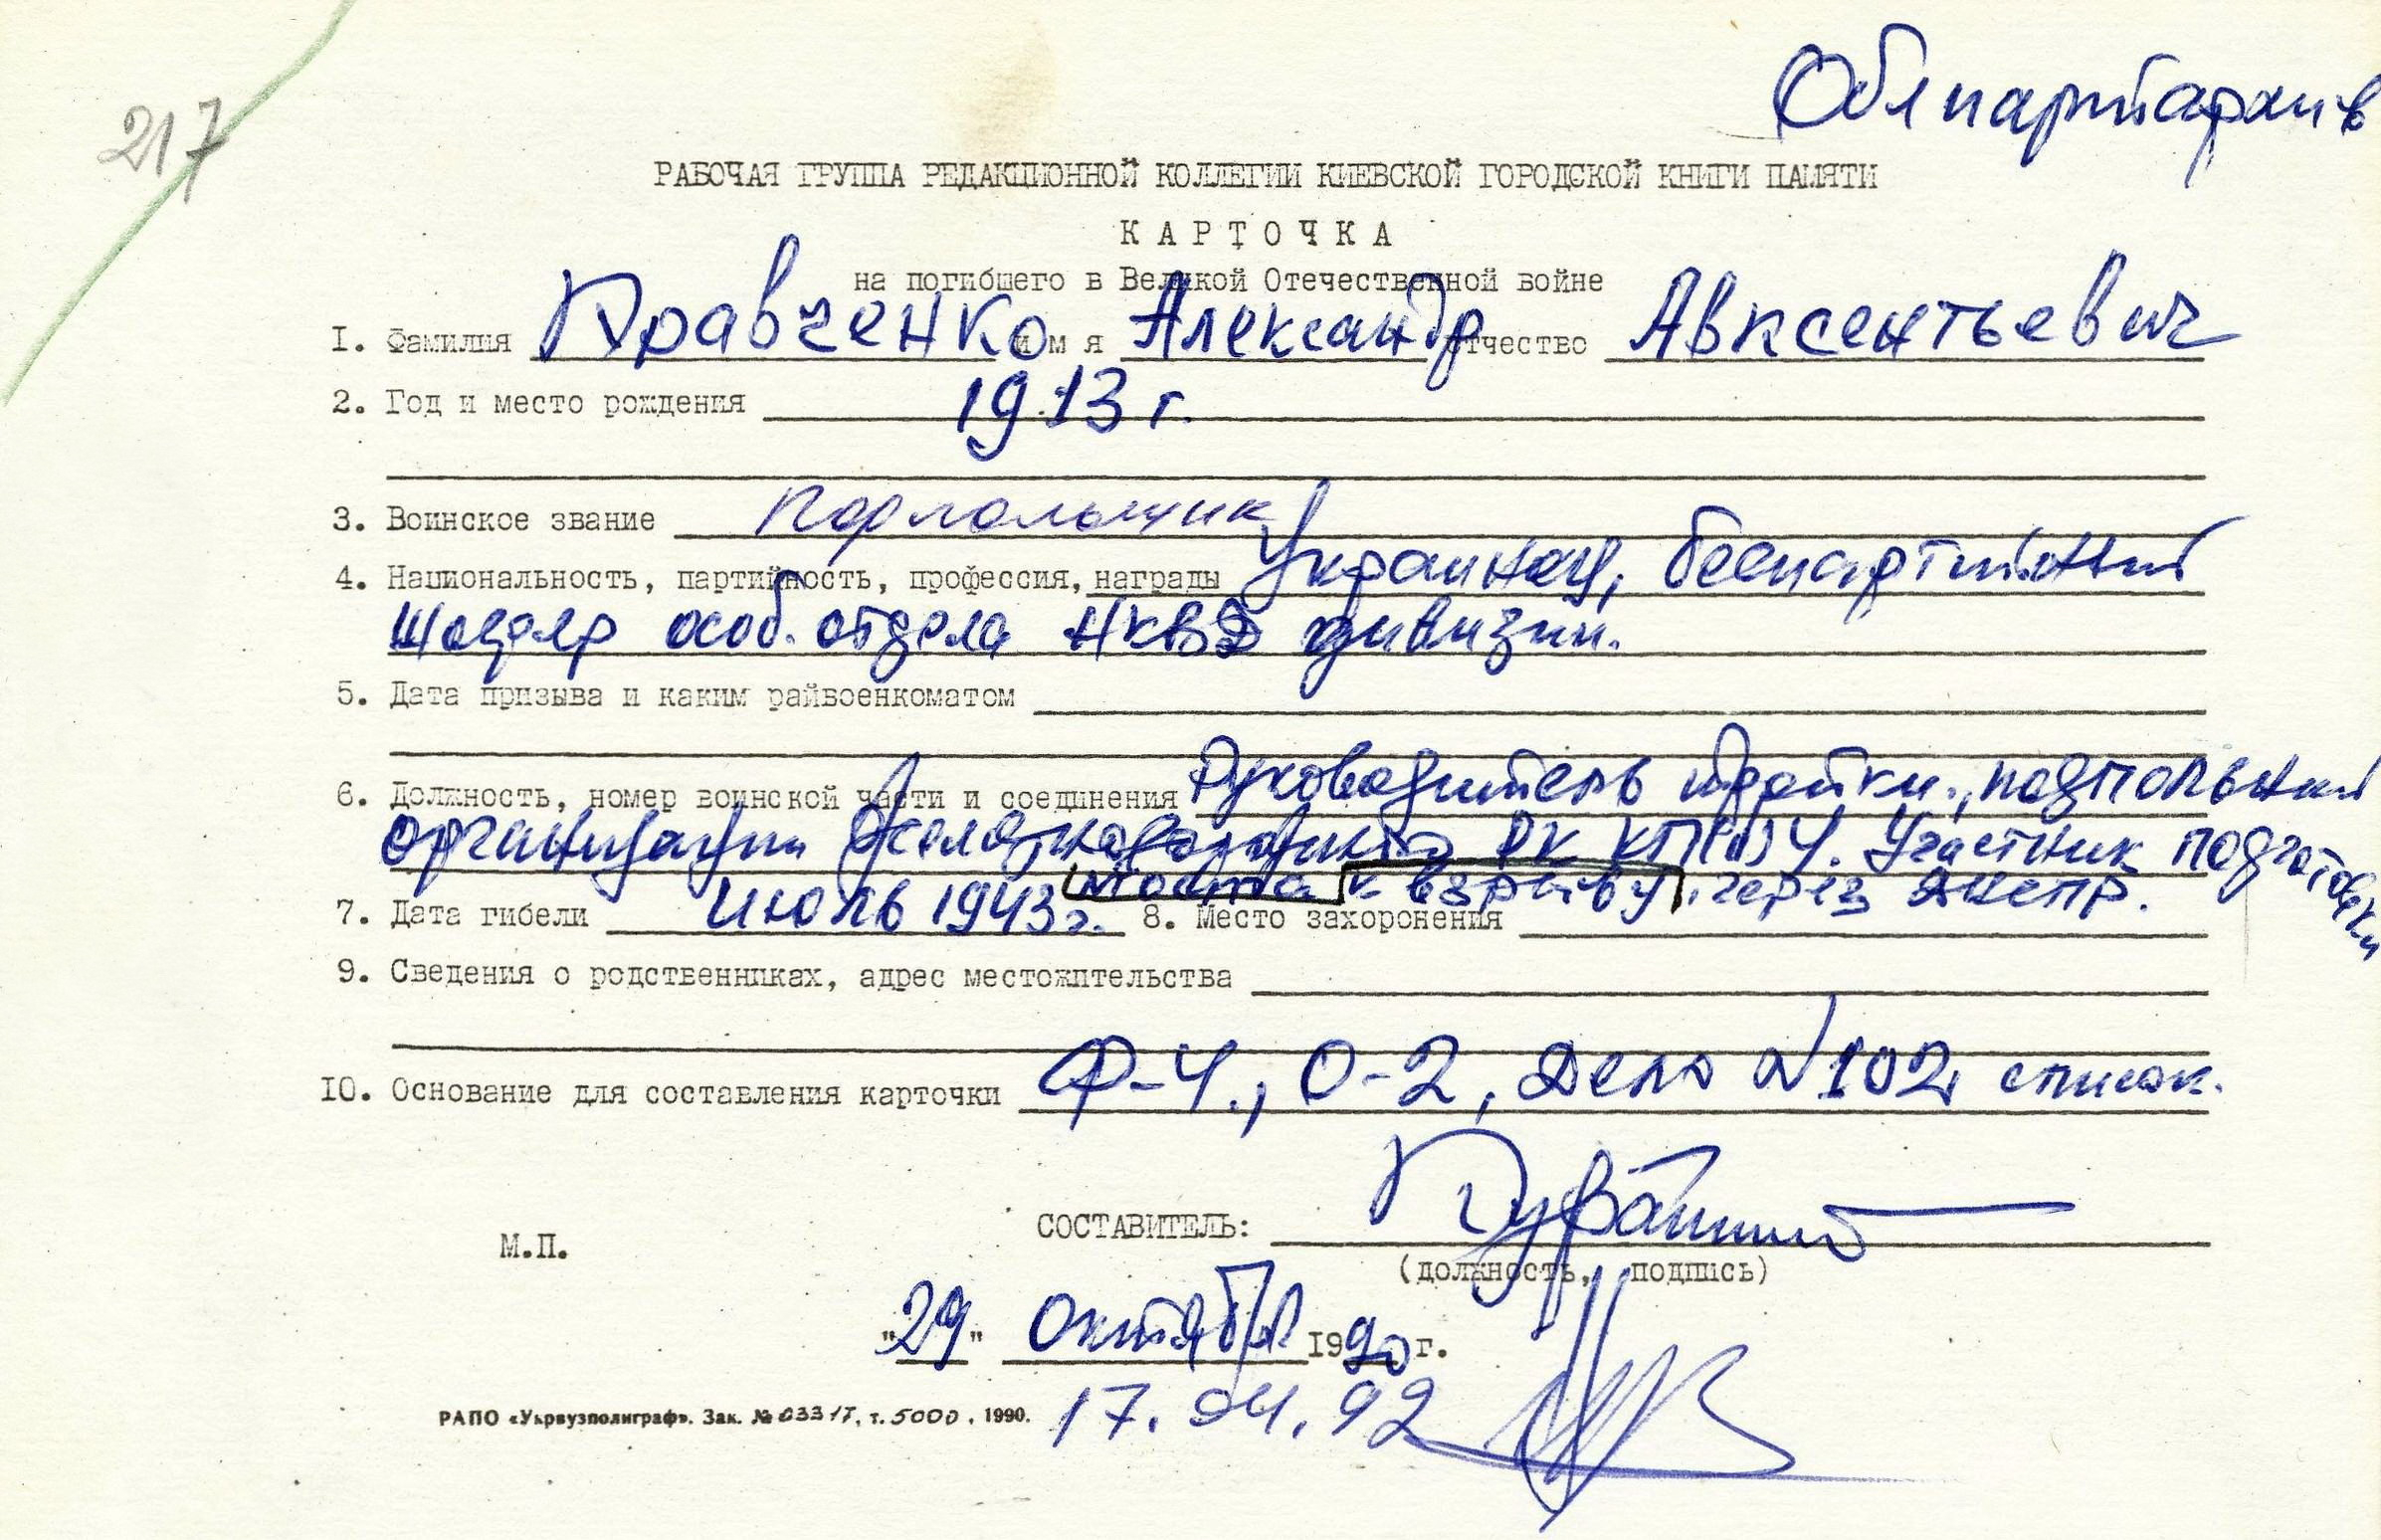 217
Облпартархив
РАБОЧАЯ ГРУППА РЕДАКЦИОННОЙ КОЛЛЕГИИ КИЕВСКОЙ ГОРОДСКОЙ КНИГИ ПАМЯТИ
КАРТОЧКА
на погибшего в Великой Отечественной войне
I. Фамилия Кравченко имя Александр отчество Авксентьевич
2. Год и место рождения 1913 г.
3. Воинское звание подпольщик
4. Национальность, партийность, профессия, награды Украинец, беспартийный
шофер особ. отдела НКВД дивизии.
5. Дата призыва и каким райвоенкоматом
6. Должность, номер воинской части и соединения Руководитель тройки, подпольной
организации Железнодорожного РК КП(б)У. Участник подготовки
моста к взрыву через Днепр.
7. Дата гибели июль 1943 г. 8. Место захоронения
9. Сведения о родственниках, адрес местожительства
10. Основание для составления карточки Ф-4., О-2, Дело № 102, список.
СОСТАВИТЕЛЬ:
М.П.
(должность, подпись)
"29" Октября 1990 г.
РАПО «Укрвузполиграф». Зак. № 0331Т, т. 5000, 1990.
17.04.92